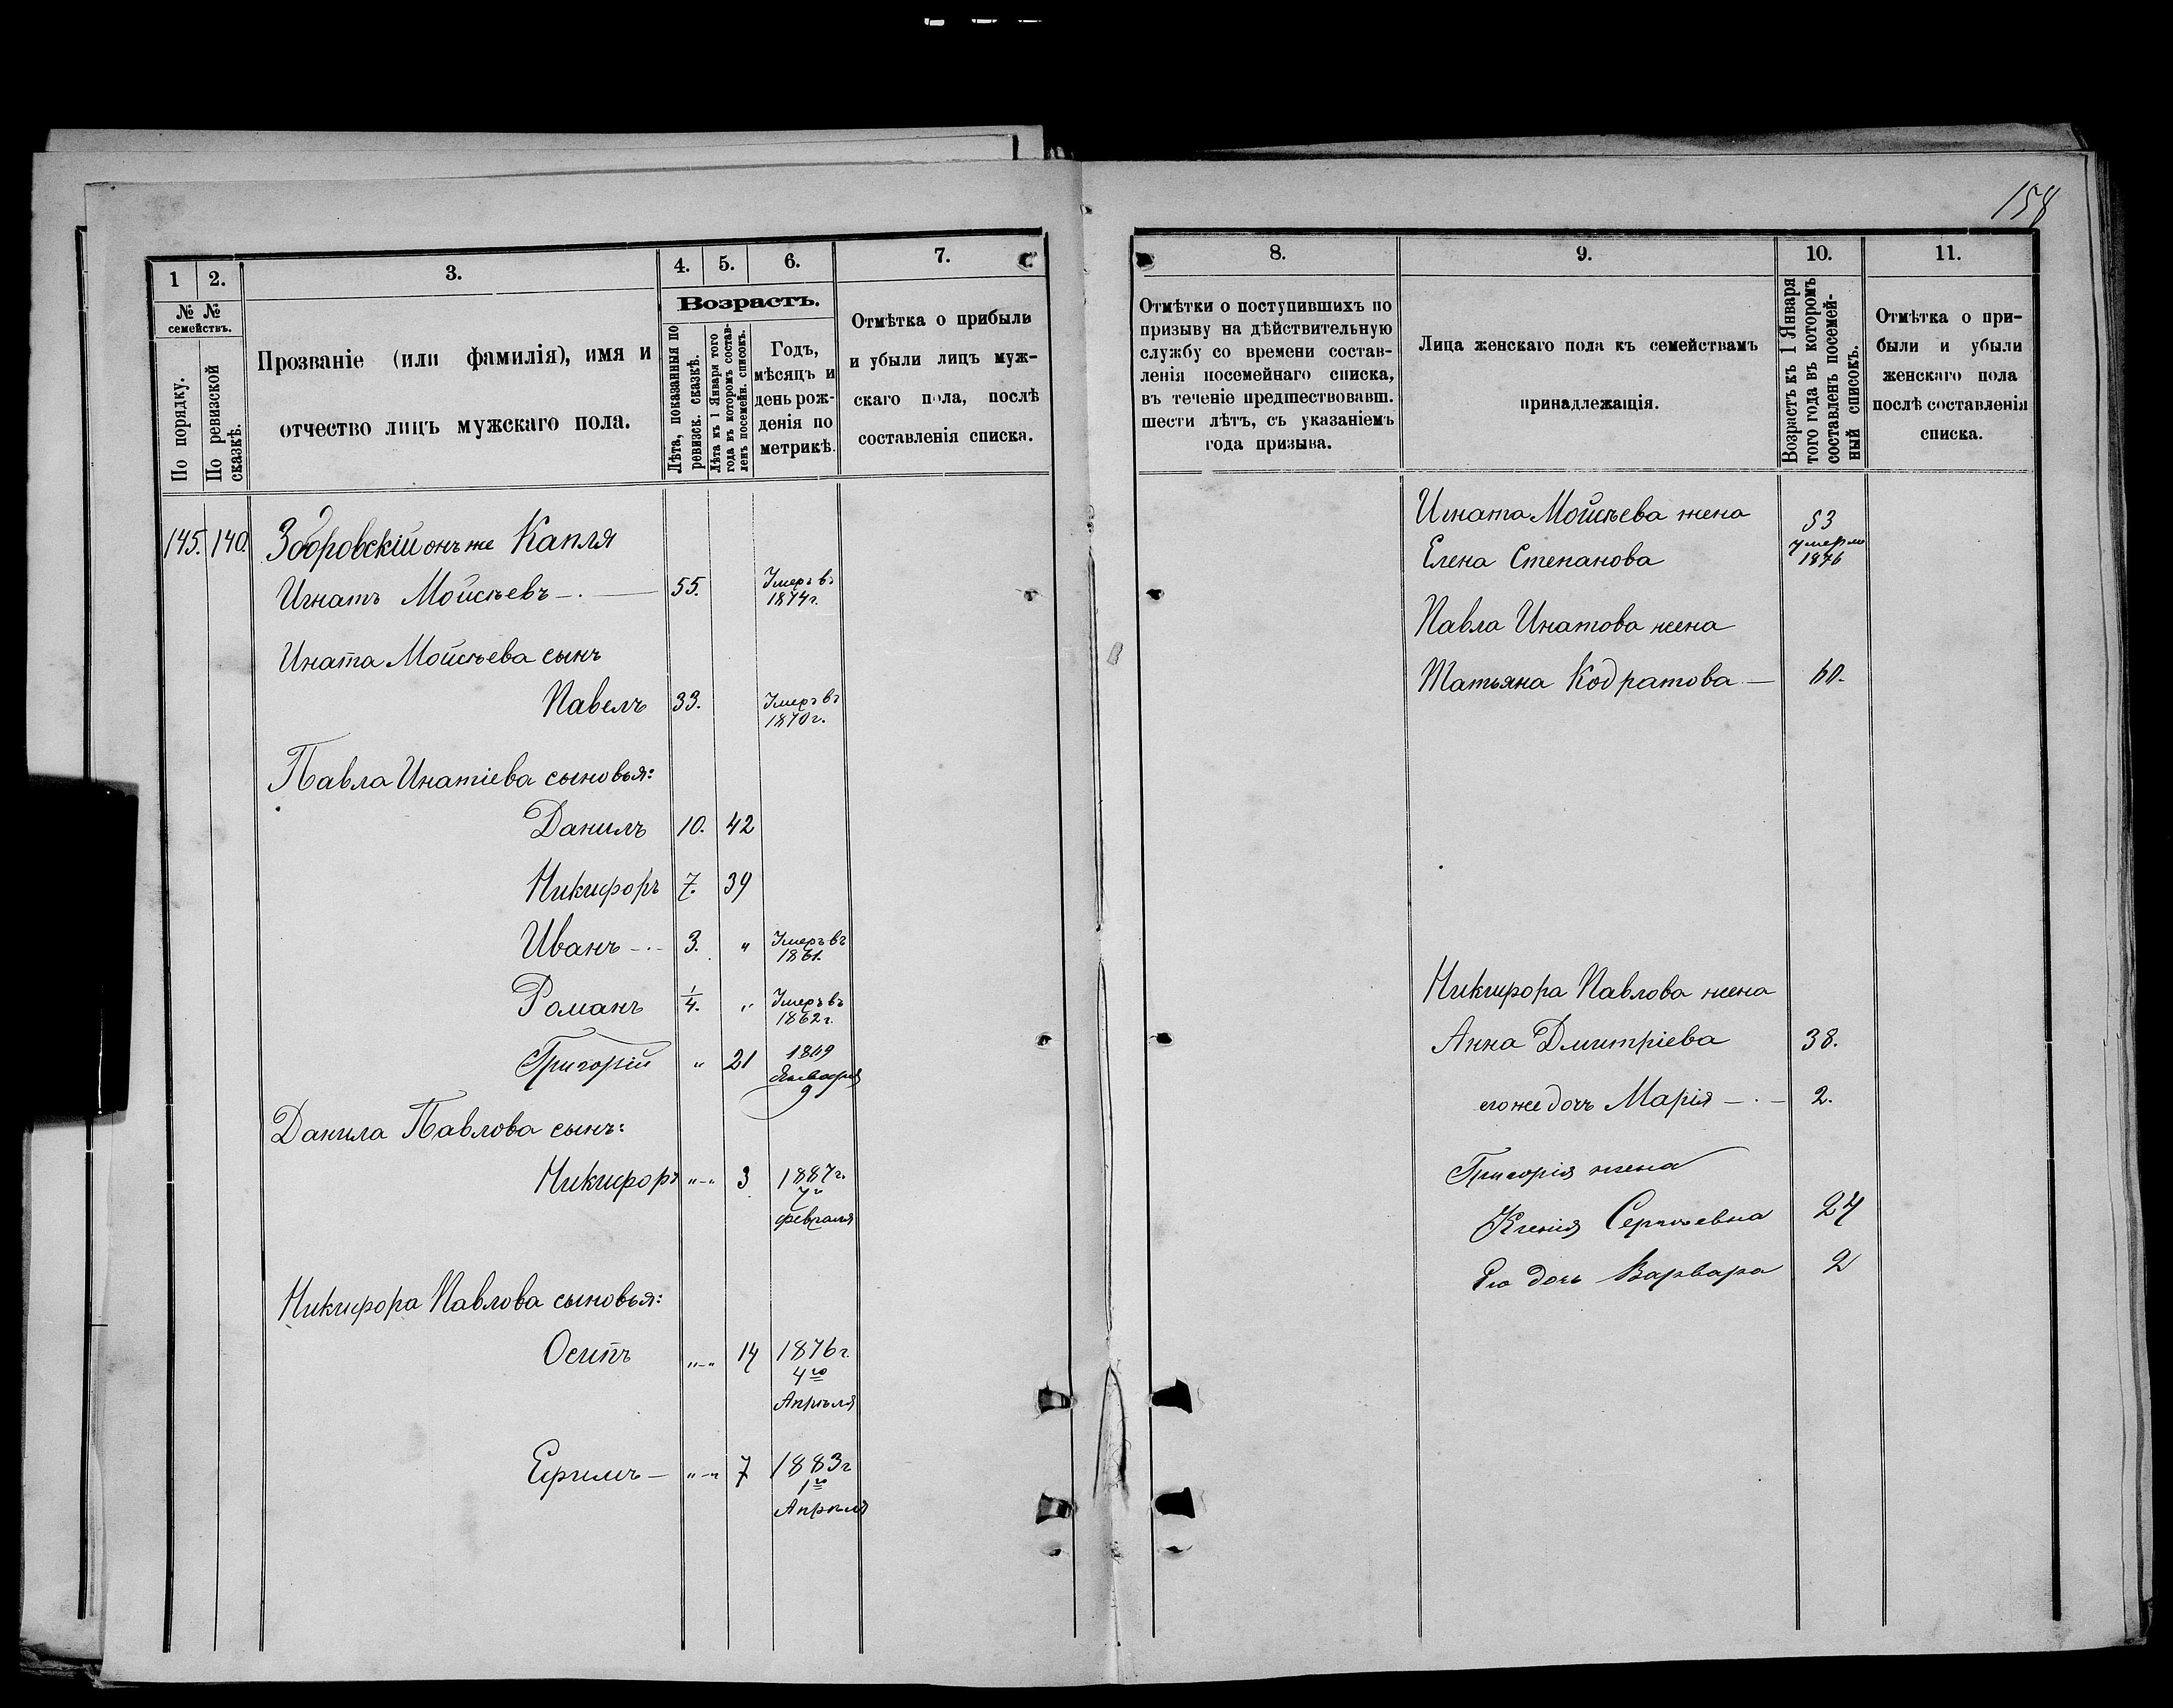 158
1
2.
3.
4.
5.
6.
7.
№ №
семействъ.
По порядку.
По ревизской
сказкѣ.
Прозваніе (или фамилія), имя и
отчество лицъ мужскаго пола.
Возрастъ.
Лѣта, показанныя по
ревизск. сказкѣ.
Лѣта къ 1 Января того
года въ которомъ состав-
ленъ посемейн. списокъ.
Годъ,
мѣсяцъ и
день рож-
денія по
метрикѣ.
Отмѣтка о прибыли
и убыли лицъ муж-
скаго пола, послѣ
составленія списка.
145. 140. Зборовскій онъ же Капля
Игнатъ Мойсѣевъ 55. Умеръ въ
1874 г.
Ината Мойсѣева сынъ
Павелъ 33. Умеръ въ
1870 г.
Павла Инатіева сыновья:
Данилъ 10. 42
Никифоръ 7. 39
Иванъ 3. " Умеръ въ
1861.
Романъ 1/4. " Умеръ въ
1862 г.
Григорій " 21 1869
Января
9
Данила Павлова сынъ:
Никифоръ "-" 3 1887 г.
7 г
февраля
Никифора Павлова сыновья:
Осипъ "-" 14 1876 г.
4го
Апрѣля
Ефимъ "-" 7 1883 г
1го
Апрѣля
8.
9.
10.
11.
Отмѣтки о поступившихъ по
призыву на дѣйствительную
службу со времени состав-
ленія посемейнаго списка,
въ теченіе предшествовавш.
шести лѣтъ, съ указаніемъ
года призыва.
Лица женскаго пола къ семействамъ
принадлежащія.
Возрастъ къ 1 Января
того года въ которомъ
составленъ посемей-
ный списокъ.
Отмѣтка о при-
были и убыли
женскаго пола
послѣ составленія
списка.
Игната Мойсѣева жена
53
Елена Степанова умерла
1876
Павла Инатова жена
Татьяна Кодратова 60.
Никифора Павлова жена
Анна Дмитріева 38.
его же дочь Марія 2.
Григорія жена
Ксенія Сергѣевна 27
Его дочь Варвара 2